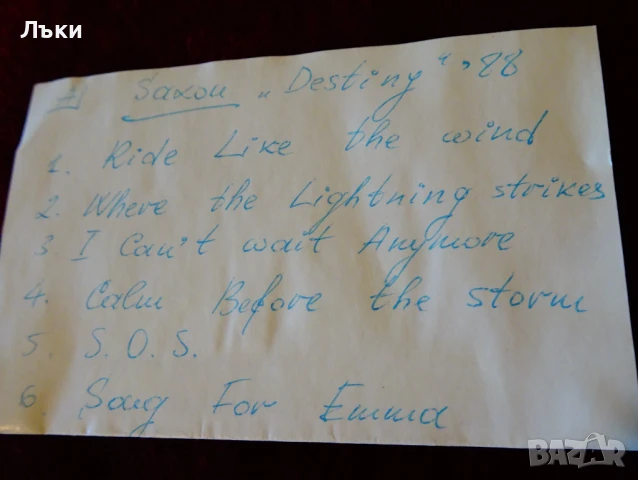 Лъки
Saxon „Destiny“, 88
1. Ride Like the wind
2. Where the Lightning strikes
3. I Can't wait Anymore
4. Calm Before the storm
5. S.O.S.
6. Song For Emma
BAZAR